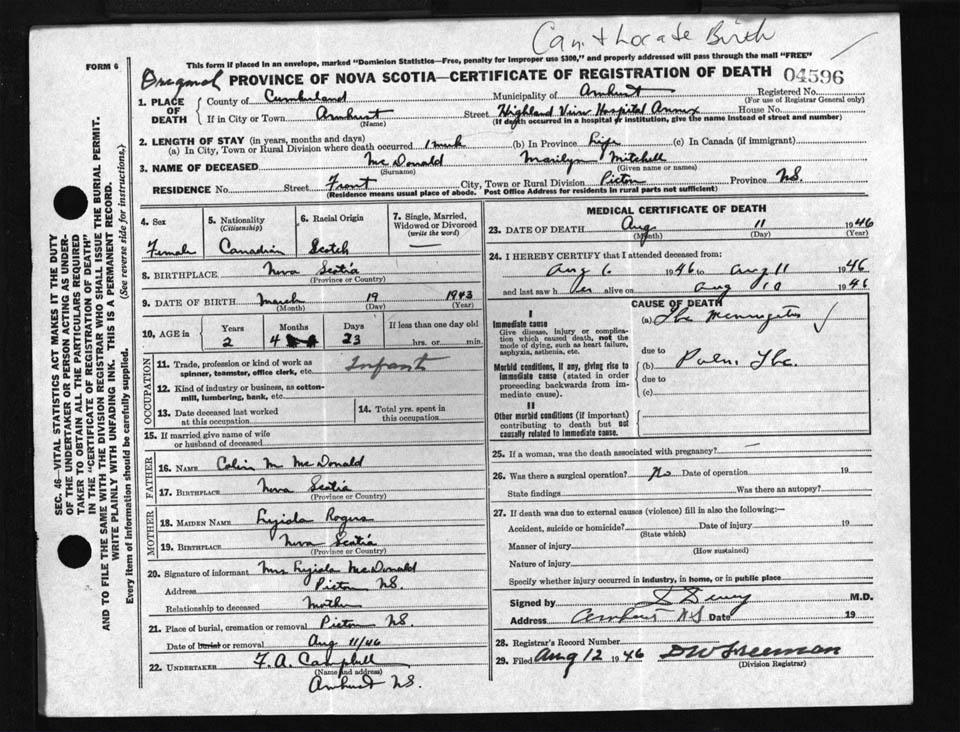 Can't Locate Birth
FORM 6
This form if placed in an envelope, marked "Dominion Statistics—Free, penalty for improper use $300," and properly addressed will pass through the mail "FREE"
Original PROVINCE OF NOVA SCOTIA—CERTIFICATE OF REGISTRATION OF DEATH 04596
1. PLACE OF DEATH County of Cumberland Municipality of Amherst Registered No.
(For use of Registrar General only)
If in City or Town Amherst Street Highland View Hospital Annex House No.
(Name) (If death occurred in a hospital or institution, give the name instead of street and number)
2. LENGTH OF STAY (in years, months and days)
(a) In City, Town or Rural Division where death occurred 1 week (b) In Province Life (c) In Canada (if immigrant)
3. NAME OF DECEASED McDonald Marilyn Mitchell
(Surname) (Given name or names)
RESIDENCE No. Street Front City, Town or Rural Division Pictou Province N.S.
(Residence means usual place of abode. Post Office Address for residents in rural parts not sufficient)
4. Sex Female
5. Nationality (Citizenship) Canadian
6. Racial Origin Scotch
7. Single, Married, Widowed or Divorced (write the word)
8. BIRTHPLACE Nova Scotia
(Province or Country)
9. DATE OF BIRTH March 19 1943
(Month) (Day) (Year)
10. AGE in Years Months Days If less than one day old
2 4 23 hrs. or min.
OCCUPATION
11. Trade, profession or kind of work as spinner, teamster, office clerk, etc. Infant
12. Kind of industry or business, as cotton-mill, lumbering, bank, etc.
13. Date deceased last worked at this occupation
14. Total yrs. spent in this occupation
15. If married give name of wife or husband of deceased
FATHER
16. NAME Colin M McDonald
17. BIRTHPLACE Nova Scotia
(Province or Country)
MOTHER
18. MAIDEN NAME Rogers
19. BIRTHPLACE Nova Scotia
(Province or Country)
20. Signature of informant Mrs McDonald
Address Pictou N.S.
Relationship to deceased Mother
21. Place of burial, cremation or removal Pictou N.S.
Date of burial or removal Aug 11/46
22. UNDERTAKER F. A. Campbell
(Name and address)
Amherst N.S.
MEDICAL CERTIFICATE OF DEATH
23. DATE OF DEATH Aug 11 1946
(Month) (Day) (Year)
24. I HEREBY CERTIFY that I attended deceased from:
Aug 6 1946 to Aug 11 1946
and last saw h er alive on Aug 10 1946
CAUSE OF DEATH
I
Immediate cause (a) Tbc Meningitis ✓
Give disease, injury or complication which caused death, not the mode of dying, such as heart failure, asphyxia, asthenia, etc.
due to
Morbid conditions, if any, giving rise to immediate cause (stated in order proceeding backwards from immediate cause). (b) Pulm. Tbc.
due to
(c)
II
Other morbid conditions (if important) contributing to death but not causally related to immediate cause.
25. If a woman, was the death associated with pregnancy?
26. Was there a surgical operation? No Date of operation 19
State findings Was there an autopsy?
27. If death was due to external causes (violence) fill in also the following:—
Accident, suicide or homicide? Date of injury 19
(State which)
Manner of injury
(How sustained)
Nature of injury
Specify whether injury occurred in industry, in home, or in public place
Signed by M.D.
Address Amherst N.S. Date 19
28. Registrar's Record Number
29. Filed Aug 12 1946 DW Freeman
(Division Registrar)
SEC. 46—VITAL STATISTICS ACT MAKES IT THE DUTY
OF THE UNDERTAKER OR PERSON ACTING AS UNDER-
TAKER TO OBTAIN ALL THE PARTICULARS REQUIRED
IN THE "CERTIFICATE OF REGISTRATION OF DEATH"
AND TO FILE THE SAME WITH THE DIVISION REGISTRAR WHO SHALL ISSUE THE BURIAL PERMIT.
WRITE PLAINLY WITH UNFADING INK. THIS IS A PERMANENT RECORD.
Every item of information should be carefully supplied. (See reverse side for instructions.)